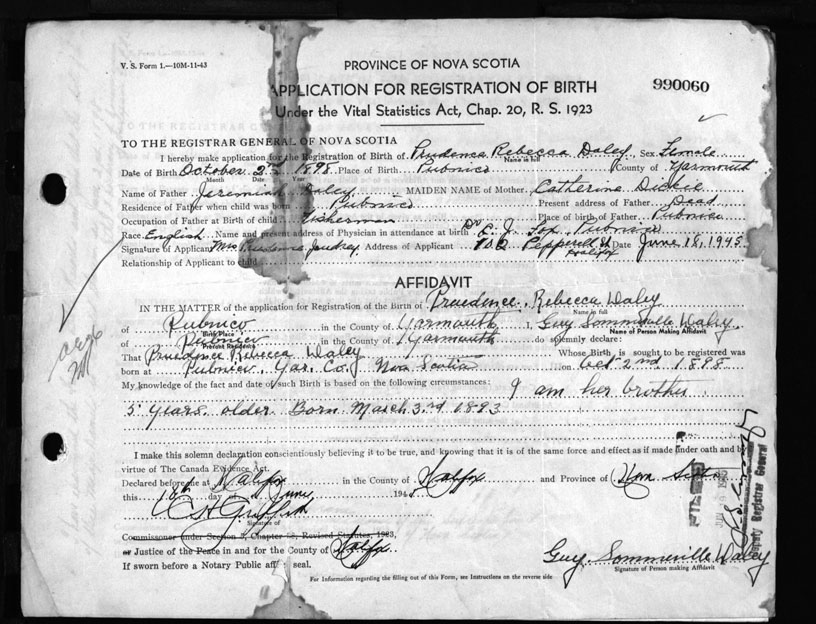 V. S. Form 1.—10M-11-43
PROVINCE OF NOVA SCOTIA
APPLICATION FOR REGISTRATION OF BIRTH
990060
Under the Vital Statistics Act, Chap. 20, R. S. 1923
TO THE REGISTRAR GENERAL OF NOVA SCOTIA
I hereby make application for the Registration of Birth of Prudence Rebecca Daley Sex Female
Name in full
Date of Birth October 2nd 1898 Place of Birth Pubnico County of Yarmouth
Month Date Year
Name of Father Jeremiah Daley MAIDEN NAME of Mother Catherine Dickie
Residence of Father when child was born Pubnico Present address of Father Dead
Occupation of Father at Birth of child Fisherman Place of birth of Father Pubnico
Race English Name and present address of Physician in attendance at birth Dr Fox Pubnico
Signature of Applicant Mrs Prudence Address of Applicant Pepperell St Date June 18, 1945
Halifax
Relationship of Applicant to child
AFFIDAVIT
IN THE MATTER of the application for Registration of the Birth of Prudence Rebecca Daley
Name in full
of Pubnico in the County of Yarmouth I, Guy Sommerville Daley
Birth Place Name of Person Making Affidavit
of Pubnico in the County of Yarmouth do solemnly declare:
Present Residence
That Prudence Rebecca Daley Whose Birth is sought to be registered was
born at Pubnico, Yar. Co., Nova Scotia on Oct 2nd 1898
My knowledge of the fact and date of such Birth is based on the following circumstances: I am her brother
5 years older Born March 3rd 1893
I make this solemn declaration conscientiously believing it to be true, and knowing that it is of the same force and effect as if made under oath and by
virtue of The Canada Evidence Act.
Declared before me at Halifax in the County of Halifax and Province of Nova Scotia
this 18th day of June 194
C H Griffith
Signature of
Commissioner under Section 3, Chapter Revised Statutes, 1923,
or Justice of the Peace in and for the County of Halifax
If sworn before a Notary Public seal.
Guy Sommerville Daley
Signature of Person making Affidavit
For Information regarding the filling out of this Form, see Instructions on the reverse side
Deputy Registrar General